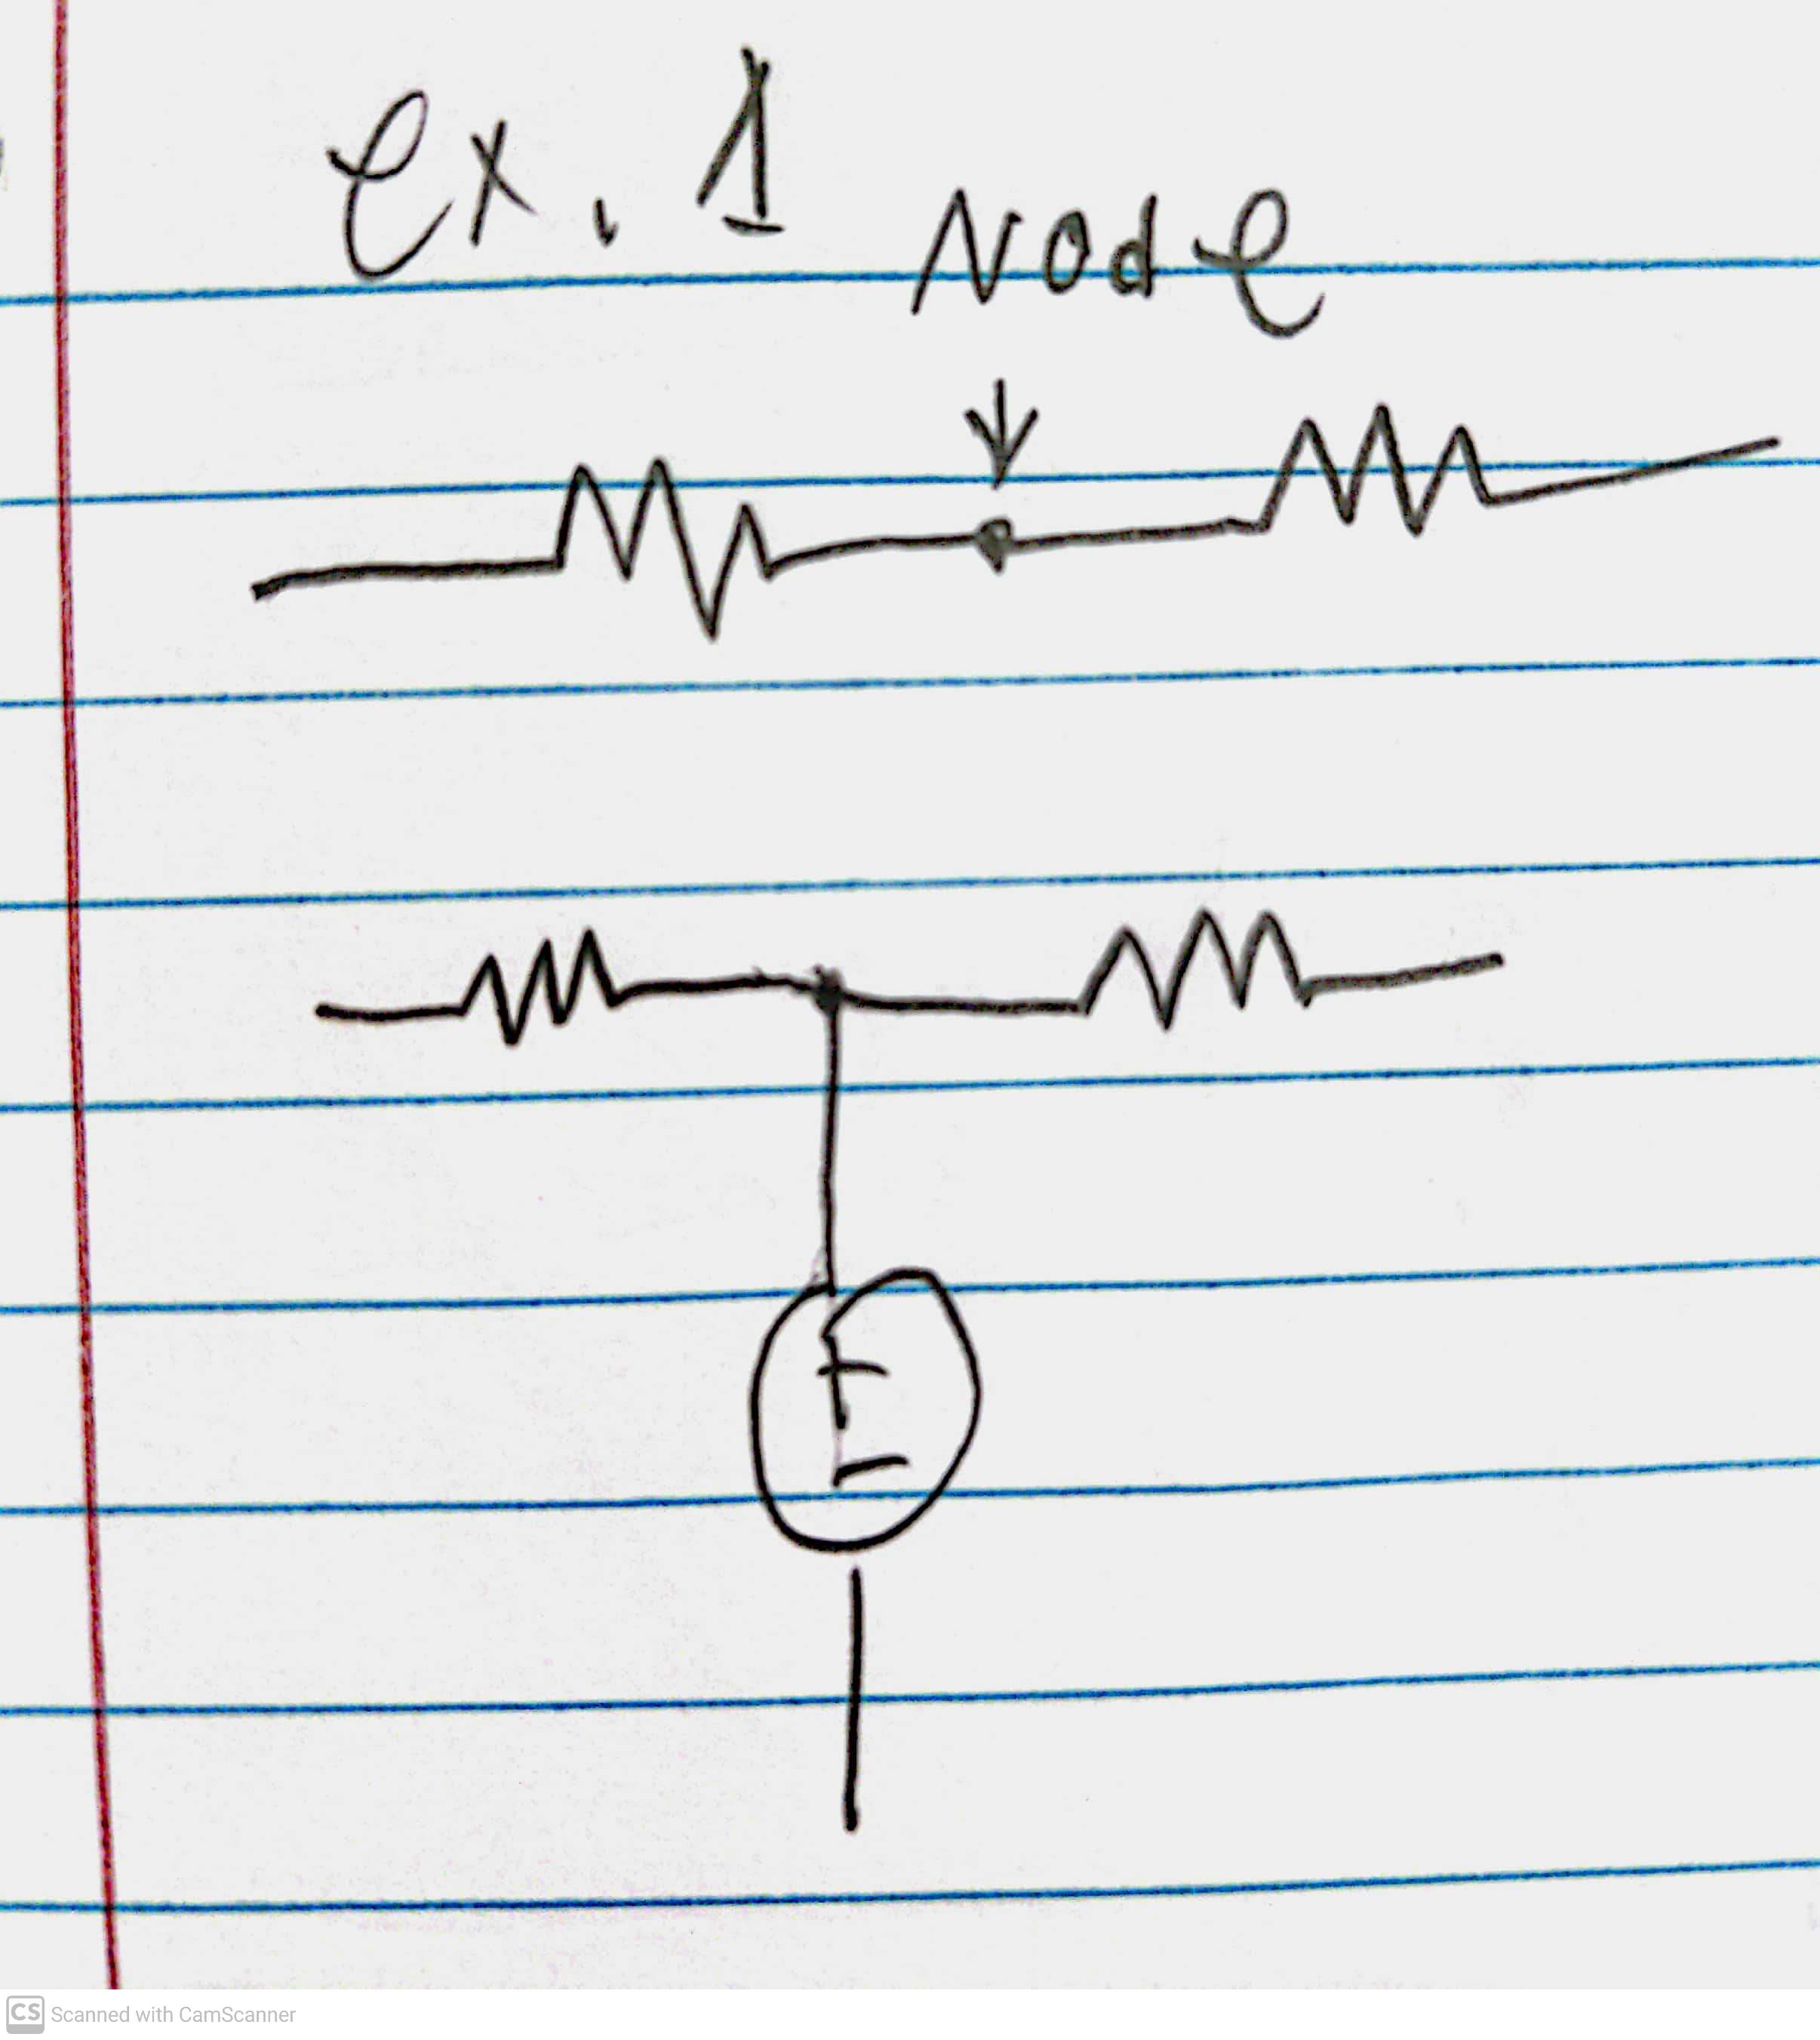 ex. 1
Node
+
-
CS Scanned with CamScanner